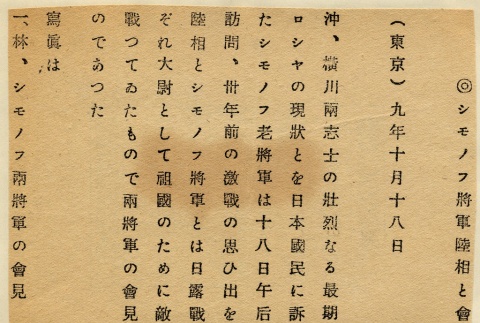 ◎シモノフ將軍陸相と會
(東京)九年十月十八日
沖、橫川兩志士の壯烈なる最期
ロシヤの現狀とを日本國民に訴
たシモノフ老將軍は十八日午后
訪問、卅年前の激戰の思ひ出を
陸相とシモノフ將軍とは日露戰
ぞれ大尉として祖國のために敵
戰つてゐたもので兩將軍の會見
のであつた
寫眞は
一、林、シモノフ兩將軍の會見